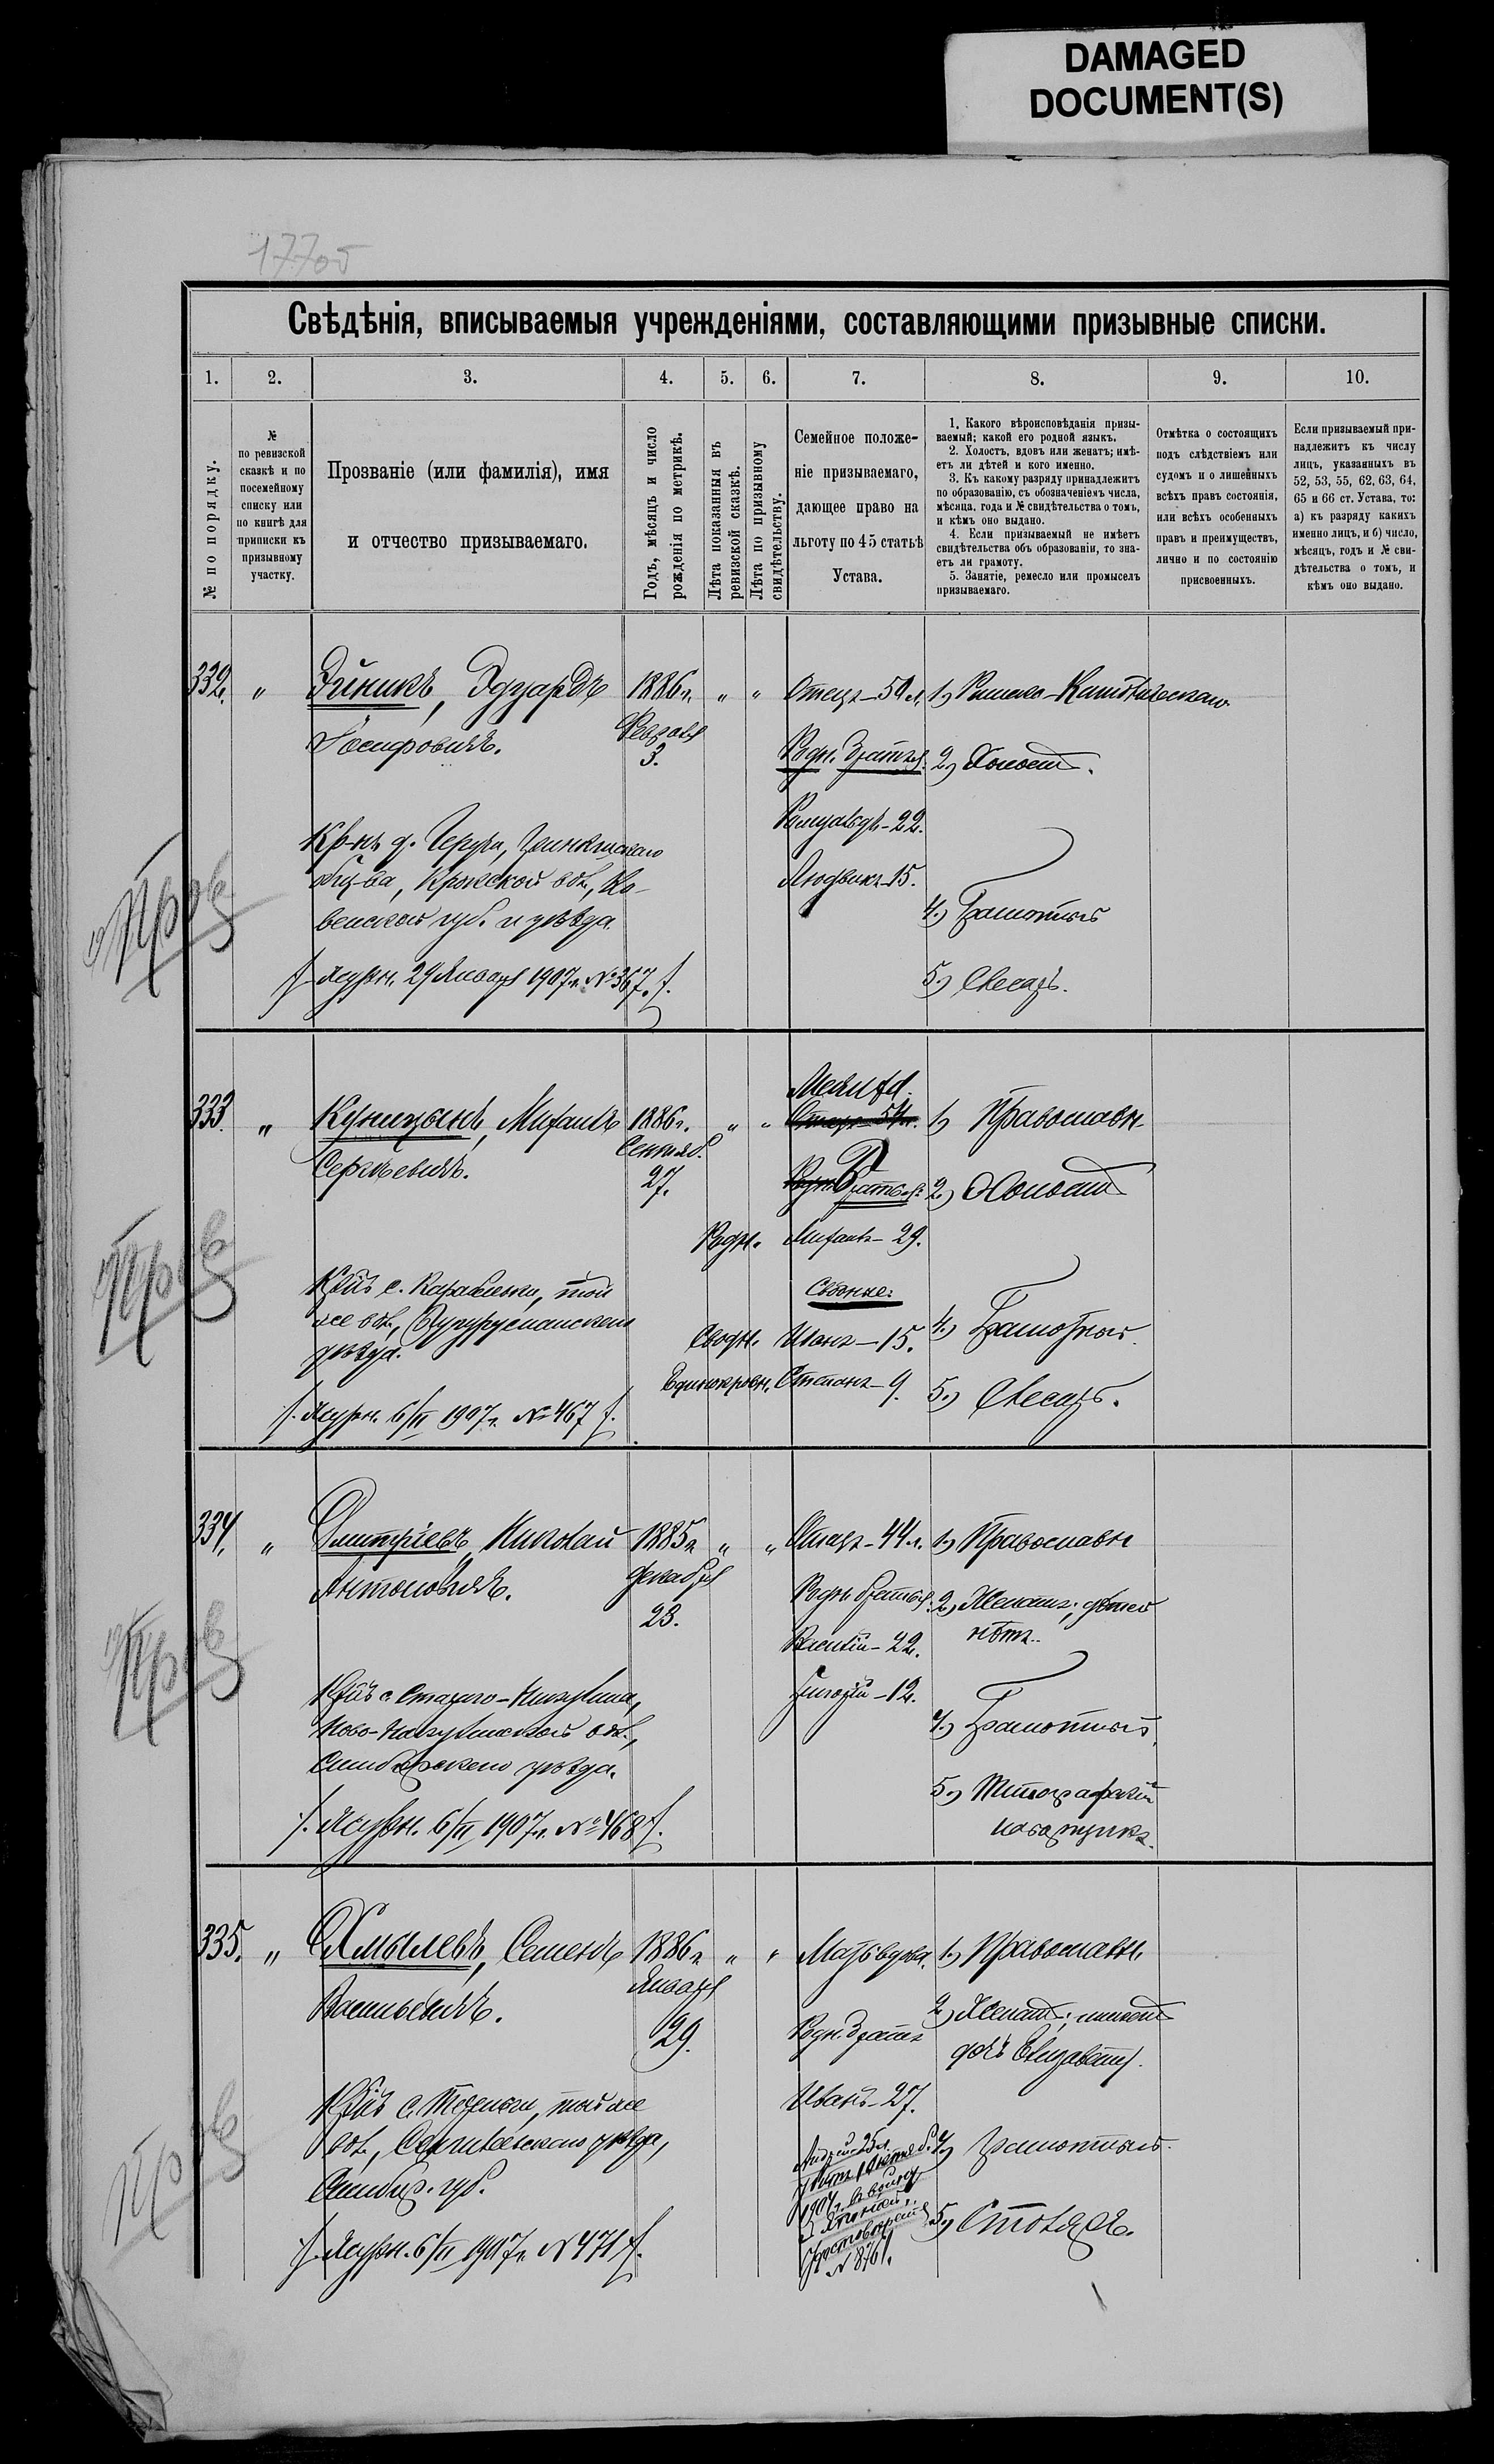 DAMAGED
DOCUMENT(S)
177об
Свѣдѣнія, вписываемыя учрежденіями, составляющими призывные списки.
1. 2. 3. 4. 5. 6. 7. 8. 9. 10.
№ по порядку.
№
по ревизской
сказкѣ и по
посемейному
списку или
по книгѣ для
приписки къ
призывному
участку.
Прозваніе (или фамилія), имя
и отчество призываемаго.
Годъ, мѣсяцъ и число
рожденія по метрикѣ.
Лѣта показанныя въ
ревизской сказкѣ.
Лѣта по призывному
свидѣтельству.
Семейное положе-
ніе призываемаго,
дающее право на
льготу по 45 статьѣ
Устава.
1. Какого вѣроисповѣданія призы-
ваемый; какой его родной языкъ.
2. Холостъ, вдовъ или женатъ; имѣ-
етъ ли дѣтей и кого именно.
3. Къ какому разряду принадлежитъ
по образованію, съ обозначеніемъ числа,
мѣсяца, года и № свидѣтельства о томъ,
и кѣмъ оно выдано.
4. Если призываемый не имѣетъ
свидѣтельства объ образованіи, то зна-
етъ ли грамоту.
5. Занятіе, ремесло или промыселъ
призываемаго.
Отмѣтка о состоящихъ
подъ слѣдствіемъ или
судомъ и о лишенныхъ
всѣхъ правъ состоянія,
или всѣхъ особенныхъ
правъ и преимуществъ,
лично и по состоянію
присвоенныхъ.
Если призываемый при-
надлежитъ къ числу
лицъ, указанныхъ въ
52, 53, 55, 62, 63, 64,
65 и 66 ст. Устава, то:
а) къ разряду какихъ
именно лицъ, и б) число,
мѣсяцъ, годъ и № сви-
дѣтельства о томъ, и
кѣмъ оно выдано.
332. " Эйникъ, Эдуардъ 1886г. " " Отецъ-50л. 1) Римско-Католическаго
Іосифовичъ.
Февраля
3.
Родн. братья: 2) Холостъ.
Ромуальдъ-22.
Людвикъ-15.
Кр-нъ д.
общ-ва, Крожской вол., Ко-
венской губ. и уѣзда.
4) Грамотный
Журн. 29 Января 1907г. №367.
5) Слесарь.
333. " Куницынъ, Михаилъ 1886г. " " Отецъ-54л. 1) Православн.
Сергѣевичъ.
Сентяб.
27.
Родн. Братья: 2) Холостъ
Родн. Михаилъ-29.
Сводные:
Сводн. Иванъ-15.
Единокровн. Степанъ-9.
Кр-нъ с. той
же вол.,
уѣзда.
4) Грамотный.
5) Слесарь.
Журн. 6/II 1907г. №467
334. " Дмитріевъ, Николай 1885г. " " Отецъ-44л. 1) Православн
Антоновичъ.
Декабря
23.
Родн. братья: 2) Женатъ; дѣтей
нѣтъ.
22.
Григорій-12.
Кр-нъ с. Стараго-Никулина,
Ново-Никулинской вол.,
Симбирскаго уѣзда.
4) Грамотный.
5) Типографскій
наборщикъ.
Журн. 6/II 1907г. №468
335. " Хмылевъ, Семенъ 1886г. " " Мать вдова. 1) Православн.
Васильевичъ.
Января
29.
Родн. братъ
Иванъ-27.
2) Женатъ; имѣетъ
дочь Елизавету.
Кр-нъ с. той же
вол., Сенгилеевскаго уѣзда,
Симбир. губ.
Андрей 25л.
1904г. въ войну
съ Японіей.
№ 8761.
4) Грамотный.
5) Столяръ.
Журн. 6/II 1907г. №471